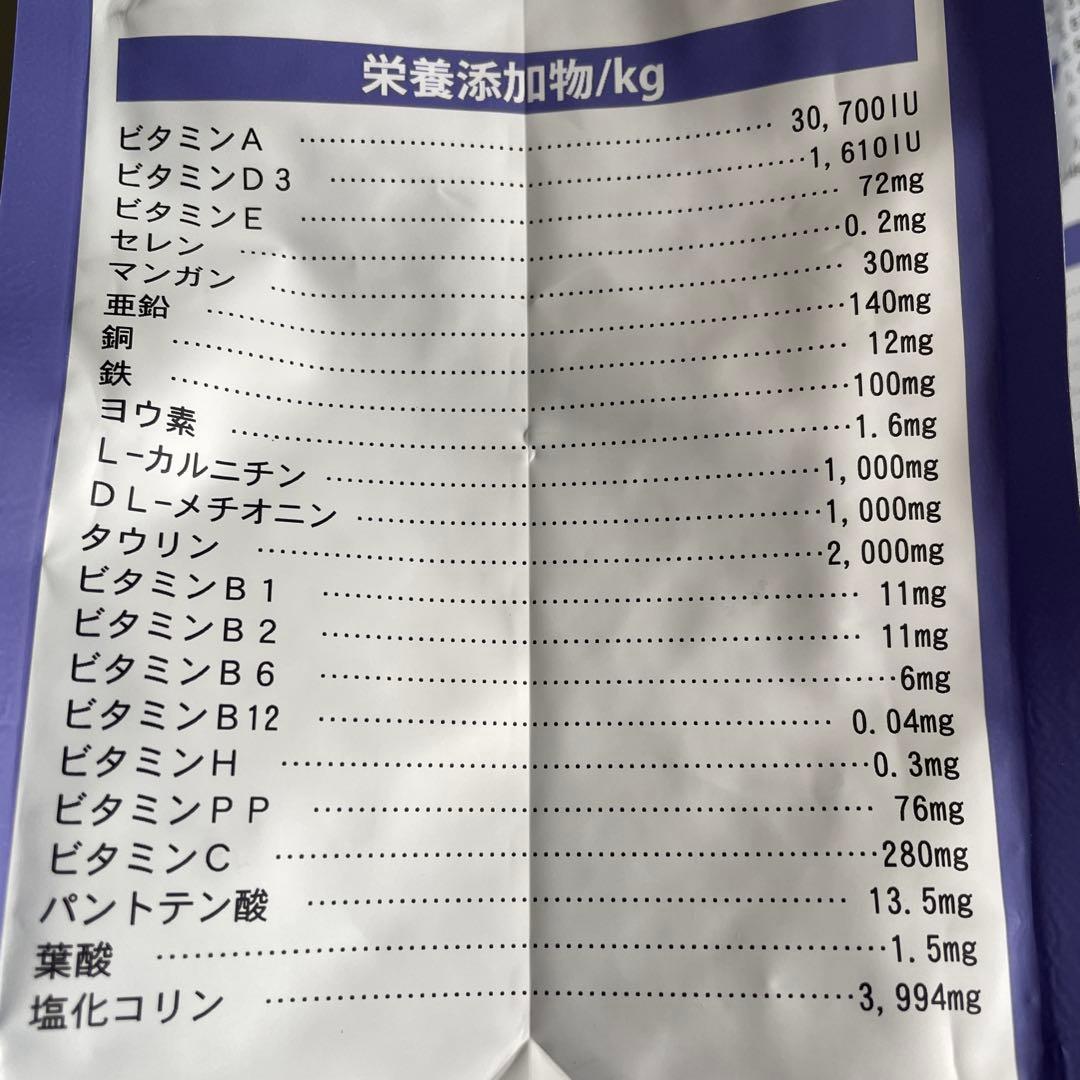 栄養添加物/kg
ビタミンA 30,700IU
ビタミンD3 1,610IU
ビタミンE 72mg
セレン 0.2mg
マンガン 30mg
亜鉛 140mg
銅 12mg
鉄 100mg
ヨウ素 1.6mg
L-カルニチン 1,000mg
DL-メチオニン 1,000mg
タウリン 2,000mg
ビタミンB1 11mg
ビタミンB2 11mg
ビタミンB6 6mg
ビタミンB12 0.04mg
ビタミンH 0.3mg
ビタミンPP 76mg
ビタミンC 280mg
パントテン酸 13.5mg
葉酸 1.5mg
塩化コリン 3,994mg